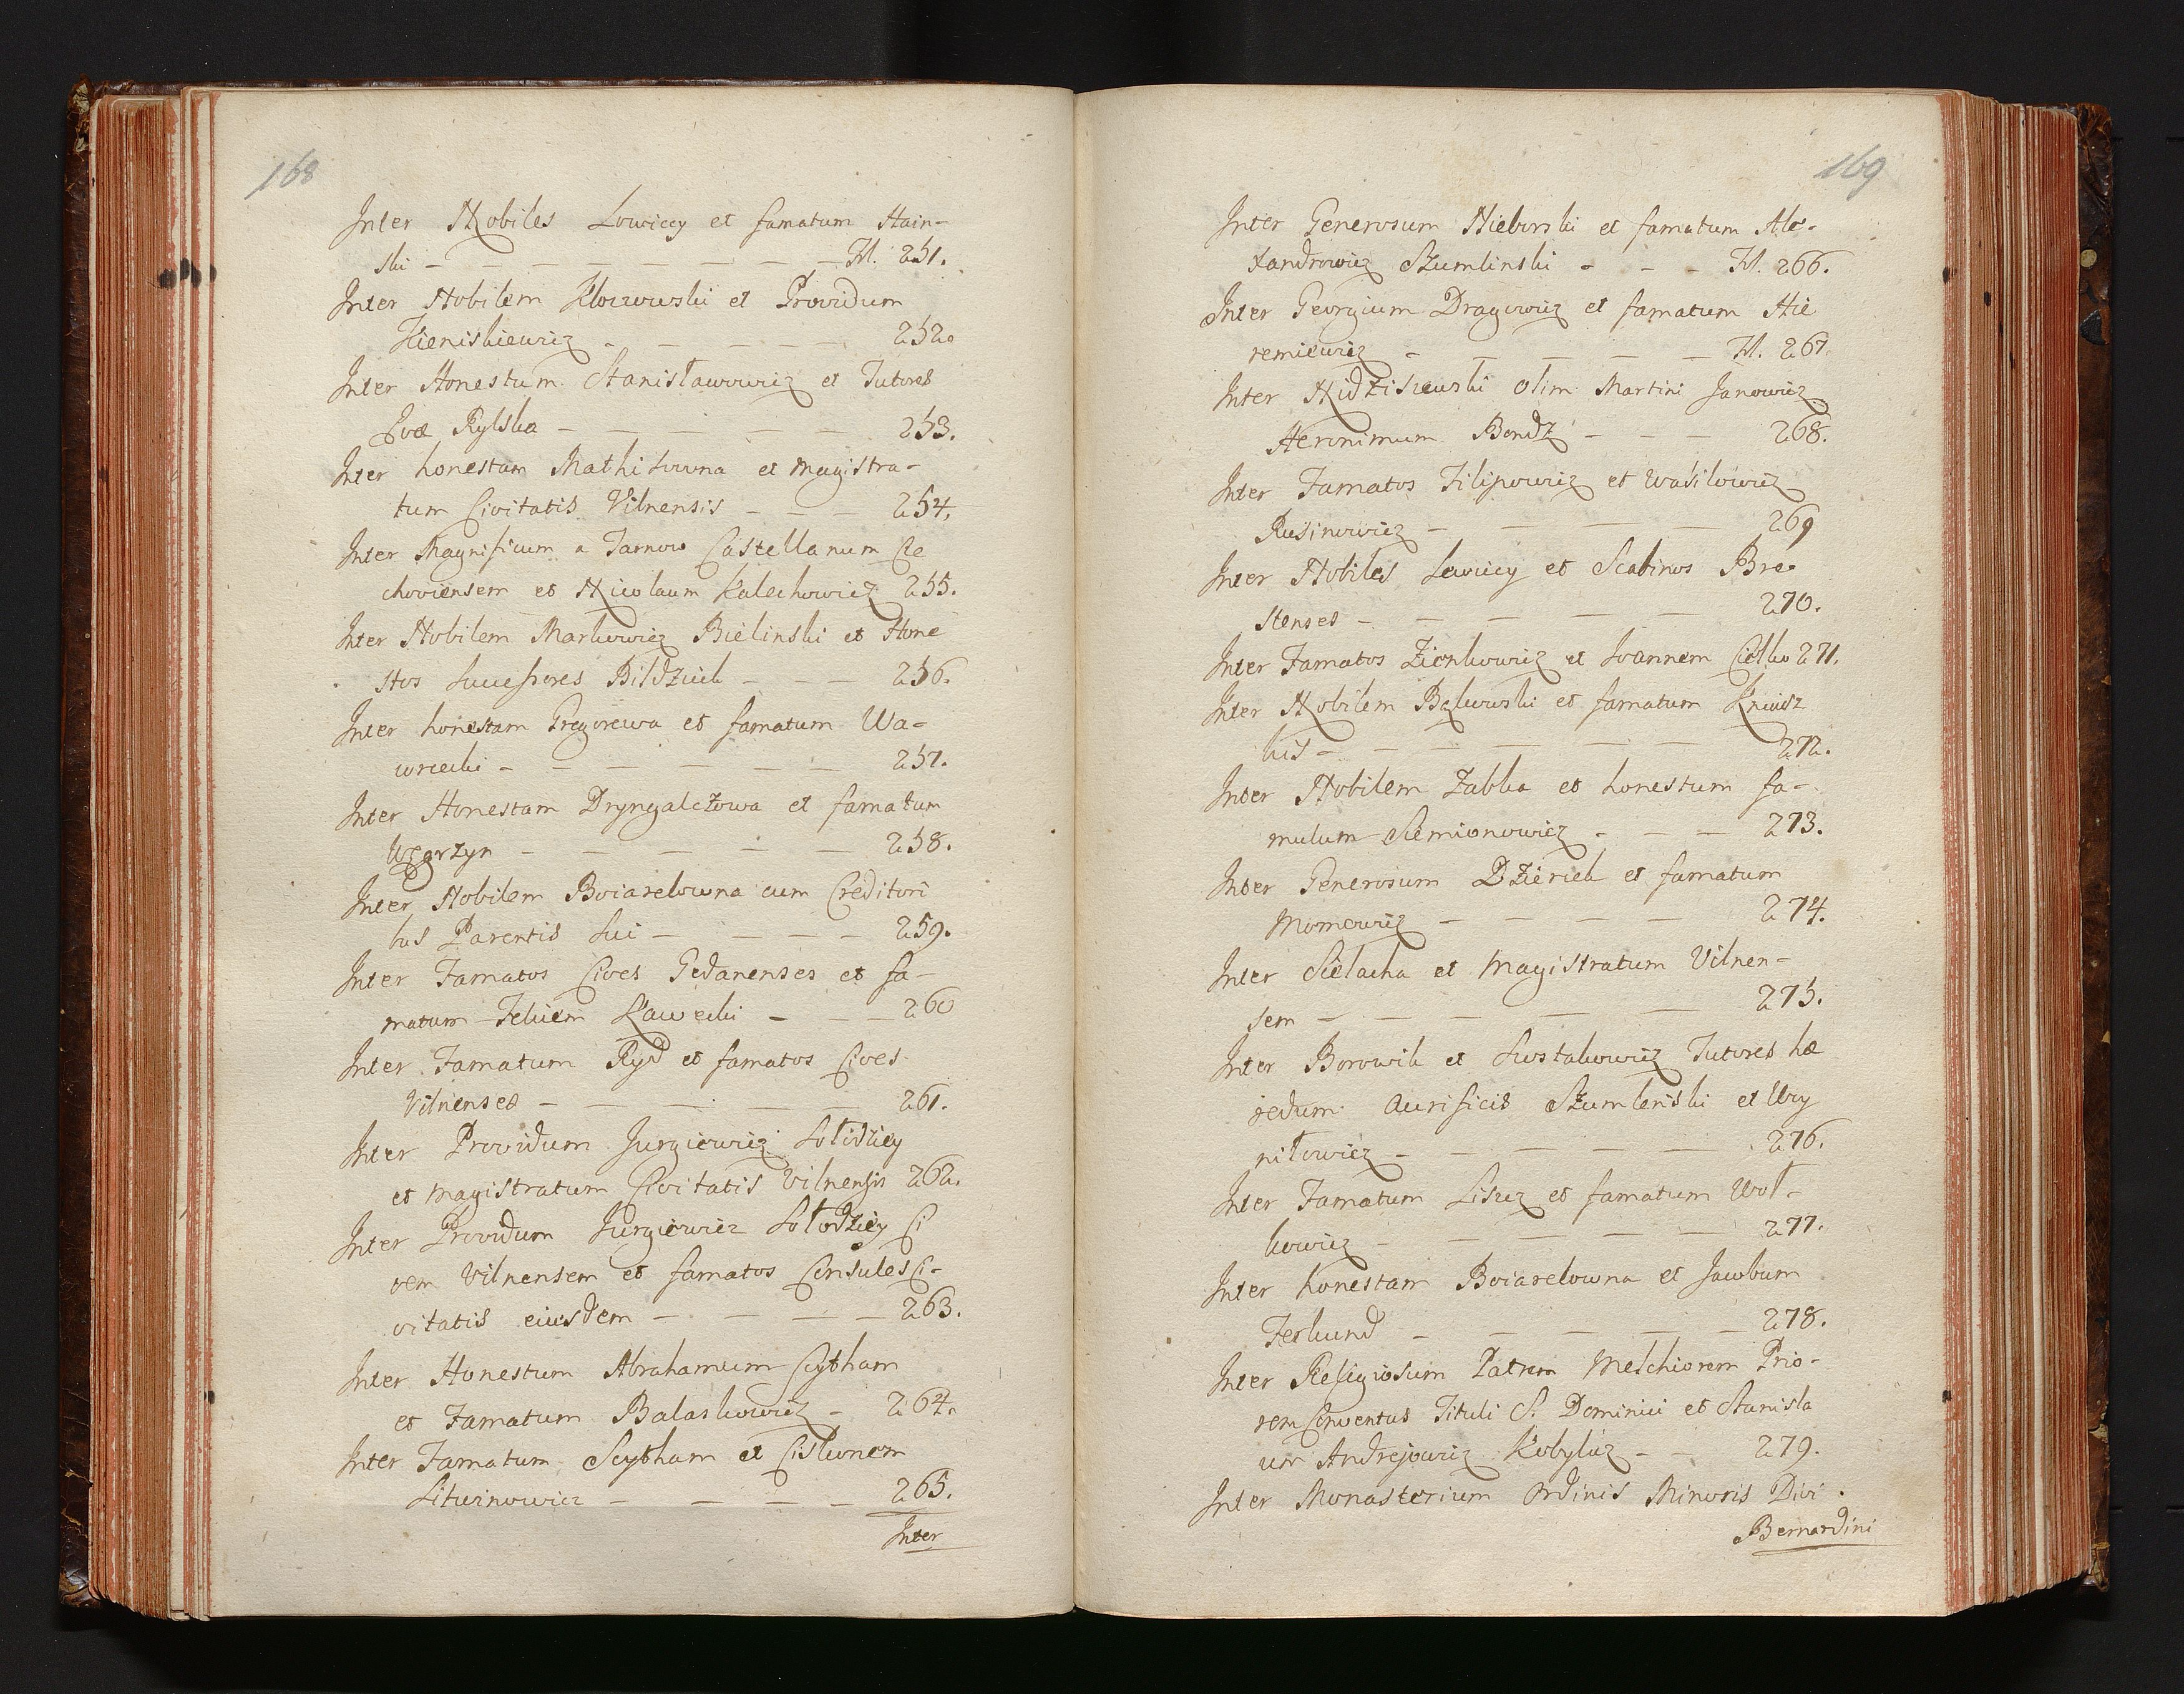 168
Inter Nobiles Lowiccy et famatum Hain-
ski - - - - - - - - Fol. 251.
Inter Nobilem Kloczowski et Providum
Zieniskiewicz - - - - - 252.
Inter Honestum Stanisławowicz et Tutores
Evæ Rylska - - - - 253.
Inter honestam Mathisowna et Magistra-
tum Civitatis Vilnensis - - - 254.
Inter Magnificum a Tarnow Castellanum Cze
choviensem et Nicolaum Kalechowicz 255.
Inter Nobilem Markowicz Bielinski et Hone
stos Successores Bildziuk - - - 256.
Inter honestam Gregorewa et famatum Wa-
wrzecki - - - - - - 257.
Inter Honestam Dryngalczowa et famatum
Węgrzyn - - - - - 258.
Inter Nobilem Boiarelowna cum Creditori
bus Parentis Sui - - - - 259.
Inter Famatos Cives Gedanenses et fa-
matum Felicem Kawecki - - - 260
Inter Famatum Ryd et famatos Cives
Vilnenses - - - - - 261.
Inter Providum Jurgiewicz Sołodzicy
et Magistratum Civitatis Vilnensis 262.
Inter Providum Jurgiewicz Sołodzicy Ci
vem Vilnensem et famatos Consules Ci-
vitatis eiusdem - - - - 263.
Inter Honestum Abrahamum Scytham
et Famatum Balaskowicz - 264.
Inter Famatum Scytham et Cislunem
Litwinowicz - - - - 265.
Inter
169
Inter Generosum Nieborski et famatum Ale-
xandrowicz Szumlinski - - - Fol. 266.
Inter Georgium Dragowicz et famatum Hie
remiewicz - - - - - Fol. 267.
Inter Nidziszewski olim Martini Janowicz
Heronimum Bondz - - - 268.
Inter Famatos Filipowicz et Wasilowicz
Rusinowicz - - - - 269
Inter Nobiles Lewiccy et Scabinos Bre-
stenses - - - - - 270.
Inter Famatos Zienkowicz et Ioannem Ciolko 271.
Inter Nobilem Bękowski et famatum Kniasz
kis - - - - - - 272.
Inter Nobilem Zabka et honestum fa-
mulum Siemionowicz - - - 273.
Inter Generosum Dzieriek et famatum
Momowicz - - - - 274.
Inter Sielacha et Magistratum Vilnen-
sem - - - - - 275.
Inter Borowik et Szostakowicz Tutores hæ
redum Aurificis Szumlenski et Wry
niłowicz - - - - - 276.
Inter Famatum Lisicz et famatum Woł-
kowicz - - - - - 277.
Inter honestam Boiarelowna et Jacobum
Ferkund - - - - - 278.
Inter Religiosum Patrem Melchiorem Prio-
rem Conventus Tituli S. Dominici et Stanisla
um Andrejowicz Kobyluz - - 279.
Inter Monasterium Ordinis Minoris Divi
Bernardini